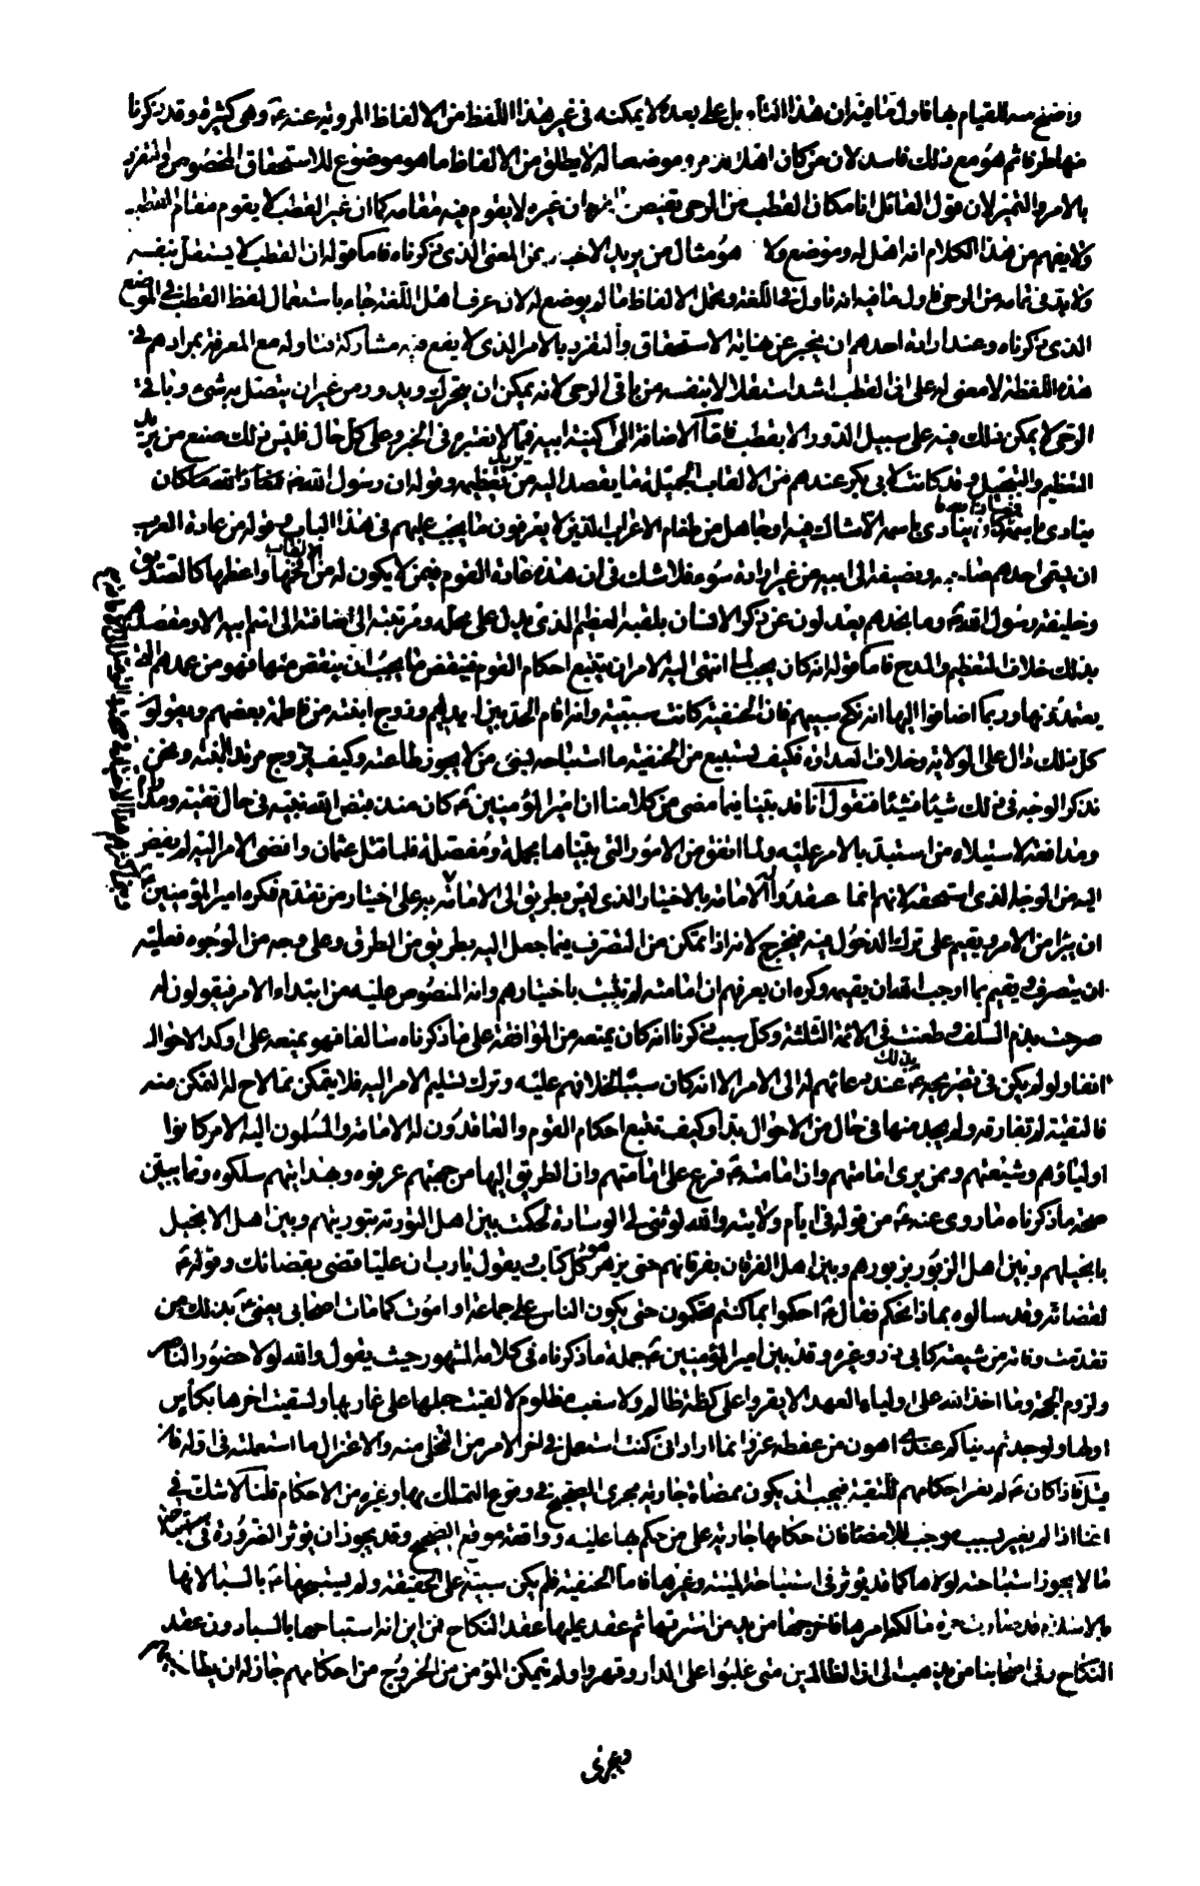 واضح منه للقيام بها فاول ما فيه ان هذا التاويل على بعده لا يمكنه في غير هذا اللفظ من الالفاظ المروية عنه ع وهي كثيرة وقد ذكرنا
منها طرفا ثم هو مع ذلك فاسد لان من كان اهلا لامر وموضعا له لا يطلق من الالفاظ ما هو موضوع للاستحقاق المخصوص والتفرد
بالامر والتميز لان قول القائل انا مكان القطب من الرحى يقتضي ان غيره لا يقوم فيه مقامه كما ان غير القطب لا يقوم مقام القطب
ولا يفهم من هذا الكلام انه اهل له وموضع ولا هو مثال من يريد الاخبار عن المعنى الذي ذكرناه فاما قوله ان القطب لا يستقل بنفسه
ولا بد في تمامه من الرحى فاول ما فيه انه تاول في اللغة وتحمل الالفاظ ما لم يوضع له لان عرف اهل اللغة جاء باستعمال لفظ القطب في الموضع
الذي ذكرناه وعند ارادة احدهم ان يخبر عن نهاية الاستحقاق والتفرد بالامر الذي لا يقع فيه مشاركة فتاوله مع المعرفة بمرادهم في
هذه اللفظة لا معنى له على ان القطب اشد استقلالا بنفسه من باقي الرحى لانه يمكن ان يتحرك ويدور من غير ان يتصل به شيء وباقي
الرحى لا يمكن ذلك فيه على سبيل الدور الا بقطب فاما الاضافة الى كنية ابيه فما لا يعتبر في الخبر وعلى كل حال فليس ذلك صنع من يريد
التعظيم والتبجيل وقد كانت لابي بكر عندهم من الالقاب الجميلة ما يقصد اليه من يريد تعظيمه وقوله ان رسول الله ص ما كان
ينادى باسمه فمعاذ الله ما كان ينادي باسمه الا شاك فيه او جاهل من طغام الاعراب الذين لا يعرفون ما يجب عليهم في هذا الباب وقوله من عادة العرب
ان يسمي احدهم صاحبه ويضيفه الى ابيه من غير ارادة سوء فلا شك في ان هذه عادة القوم فيمن لا يكون له من الالقاب افخمها واعظمها كالصديق
وخليفة رسول الله ص وما نجدهم يعدلون عن ذكر الانسان بلقبه العظيم الذي يدل على محله ومرتبته الى اضافته الى اسم ابيه الا ومقصدهم
بذلك خلاف التعظيم والمدح فاما قوله انه كان يجب لما انتهى اليه الامر ان يتتبع احكام القوم فينقض ما يجب ان ينقض منها فهو من عمدهم التي
يعتمدونها وربما اضافوا اليها انه نكح سبيهم فان الحنفية كانت سبية وانه اقام الحد بين ايديهم وزوج ابنته من فاطمة بعضهم ويقولون
كل ذلك دال على الولاية وخلاف العداوة فكيف يستبيح من الحنفية ما استباحه بسبي من لا يجوز طاعته وكيف يزوج مرتدا ابنته ونحن
نذكر الوجه في ذلك شيئا فشيئا فنقول انا قد بينا فيما مضى من كلامنا ان امير المؤمنين ع كان منذ قبض الله نبيه في حال تقية ومداراة
ومدافعة لاستيلاء من استبد بالامر عليه ولما اتفق من الامور التي بيناها مجملة ومفصلة فلما قتل عثمان وافضى الامر اليه لم يفض
اليه من الوجه الذي استحقه لانهم انما عقدوا له الامامة بالاختيار الذي ليس بطريق الى الامامة على اختيار من تقدم فكره امير المؤمنين
ان يتبرا من الامر ويقيم على ترك الدخول فيه فيخرج لانه اذا تمكن من التصرف فيما جعل اليه بطريق من الطرق وعلى وجه من الوجوه فعليه
ان يتصرف ويقيم بما اوجب الله ان يقيمه وكره ان يعرفهم ان امامته لم تثبت باختيارهم وانه المنصوص عليه من ابتداء الامر فيقولون له
صرحت بذم السلف وطعنت في الائمة الثلثة وكل سبب ذكرنا انه كان يمنعه من الموافقة على ما ذكرناه سالفا فهو يمنعه على اوكد الاحوال
انفا ولو لم يكن في تصريحه ع بذلك عند دعائهم له الى الامر الا انه كان سببا لخلافهم عليه وترك تسليم الامر اليه فلا يتمكن مما لاح له التمكن منه
فالتقية لم تفارقه ولم يجد منها في حال من الاحوال بدا وكيف تتبع احكام القوم والعاقدون له الامامة والمسلمون اليه الامر كانوا
اولياؤهم وشيعتهم وممن يرى امامتهم وان امامته ع فرع على امامتهم وان الطريق اليها من جهتهم عرفوه وهدايتهم سلكوه ومما يبين
صحة ما ذكرناه ما روي عنه ع من قوله في ايام ولايته والله لو ثني لي الوسادة لحكمت بين اهل التورية بتوريتهم وبين اهل الانجيل
بانجيلهم وبين اهل الزبور بزبورهم وبين اهل الفرقان بفرقانهم حتى يزهر كل كتاب ويقول يا رب ان عليا قضى بقضائك وقوله ع
لقضاته وقد سالوه بماذا نحكم فقال ع احكموا بما كنتم تحكمون حتى يكون الناس على جماعة او اموت كما مات اصحابي يعني ع بذلك من
تقدمت وفاته من شيعته كابي ذر وغيره وقد بين امير المؤمنين ع جملة ما ذكرناه في كلامه المشهور حيث يقول والله لولا حضور الناصر
ولزوم الحجة وما اخذ الله على اولياء العهد الا يقروا على كظة ظالم ولا سغب مظلوم لالقيت حبلها على غاربها ولسقيت اخرها بكاس
اولها ولوجدتم دنياكم عندي اهون من عفطة عنز وانما اراد اني كنت استعمل في اخر الامر من التخلي منه والاعتزال ما استعملته في اوله فان
قيل فاذا كان ع لم يغير احكامهم للتقية فيجب ان يكون ممضاة جارية مجرى الصحيح في وقوع التملك بها وغيره من الاحكام قلنا لا شك في
انما اذا لم يغير بسبب موجب للامضاء فان احكامها جارية على من حكم بها عليه وواقعة موقع الصحيح وقد يجوز ان يوثر الضرورة في استباحة
ما لا يجوز استباحته لولاها كما قد يوثر في استباحة الميتة وغيرها فاما الحنفية فلم يكن سبية على الحقيقة ولم يستبحها ع بالسبا لانها
بالاسلام قد صارت حرة مالكة امرها فاخرجها من يد من استرقها ثم عقد عليها عقد النكاح فمن اين انه استباحها بالسبا دون عقد
النكاح وفي اصحابنا من يذهب الى ان الظالمين متى غلبوا على الدار وقهروا ولم يتمكن المؤمن من الخروج من احكامهم جاز له ان يطا سبيهم
ويجري